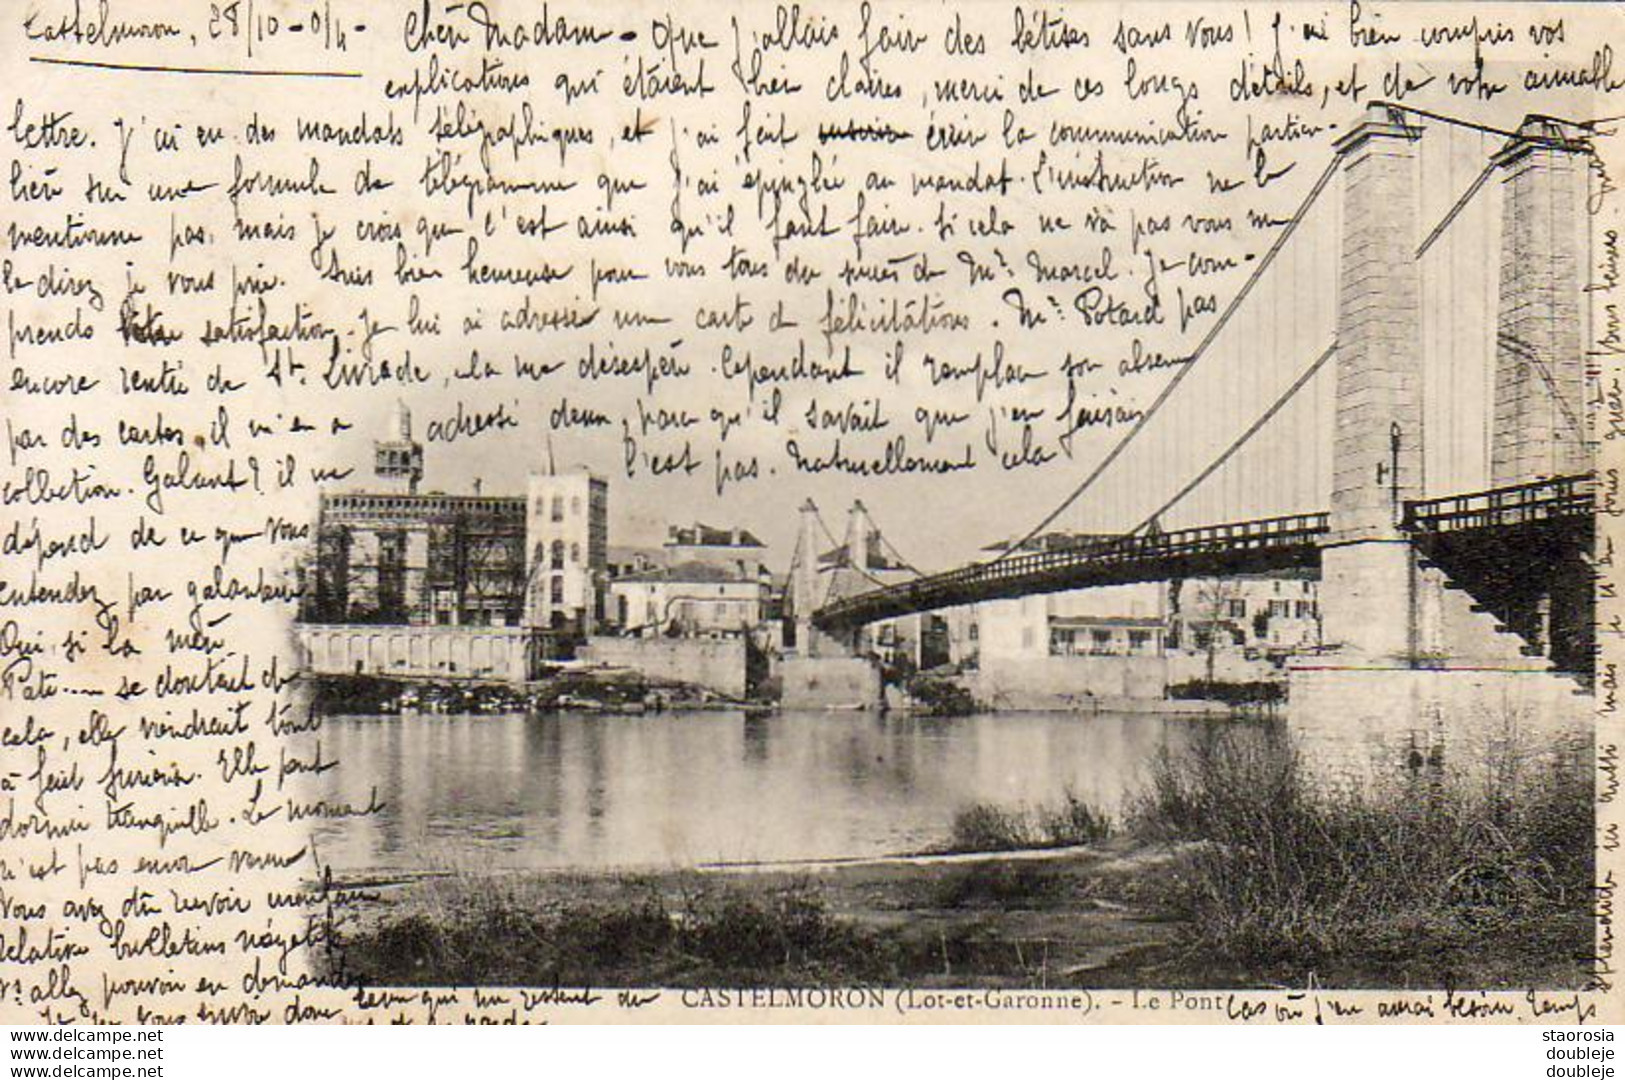 Castelmoron, 28/10-04- Chère Madame - Que j'allais faire des bêtises sans vous! J'ai bien compris vos
explications qui étaient bien claires, merci de ces longs détails, et de votre aimable
lettre. J'ai eu des mandats télégraphiques, et j'ai fait écrire la communication particu-
lière sur une formule de télégramme que j'ai épinglée au mandat. L'instruction ne le
mentionne pas, mais je crois que c'est ainsi qu'il faut faire. Si cela ne va pas vous me
le direz je vous prie. Suis bien heureuse pour vous tous du succès de Mr. Marcel. Je com-
prends votre satisfaction. Je lui ai adressé une carte de félicitations. Mr. Potard pas
encore rentré de Ste. Livrade, cela me désespère. Cependant il remplace son absence
par des cartes, il m'en a adressé deux, parce qu'il savait que j'en faisais
collection. Galant? il ne l'est pas. Naturellement cela
dépend de ce que vous
entendez par galanterie
Oui, si la mère
Pate.... se doutait de
cela, elle viendrait tout
à fait furieuse. Elle peut
dormir tranquille. Le moment
n'est pas encore venu!
Vous avez dû recevoir
relative bulletins négatifs
Vs allez pouvoir en demander
Je vous donc ceux qui me restent du
CASTELMORON (Lot-et-Garonne). - Le Pont
cas où j'en aurai besoin. Temps
staorosia
doubleje
doubleje
www.delcampe.net
www.delcampe.net
www.delcampe.net